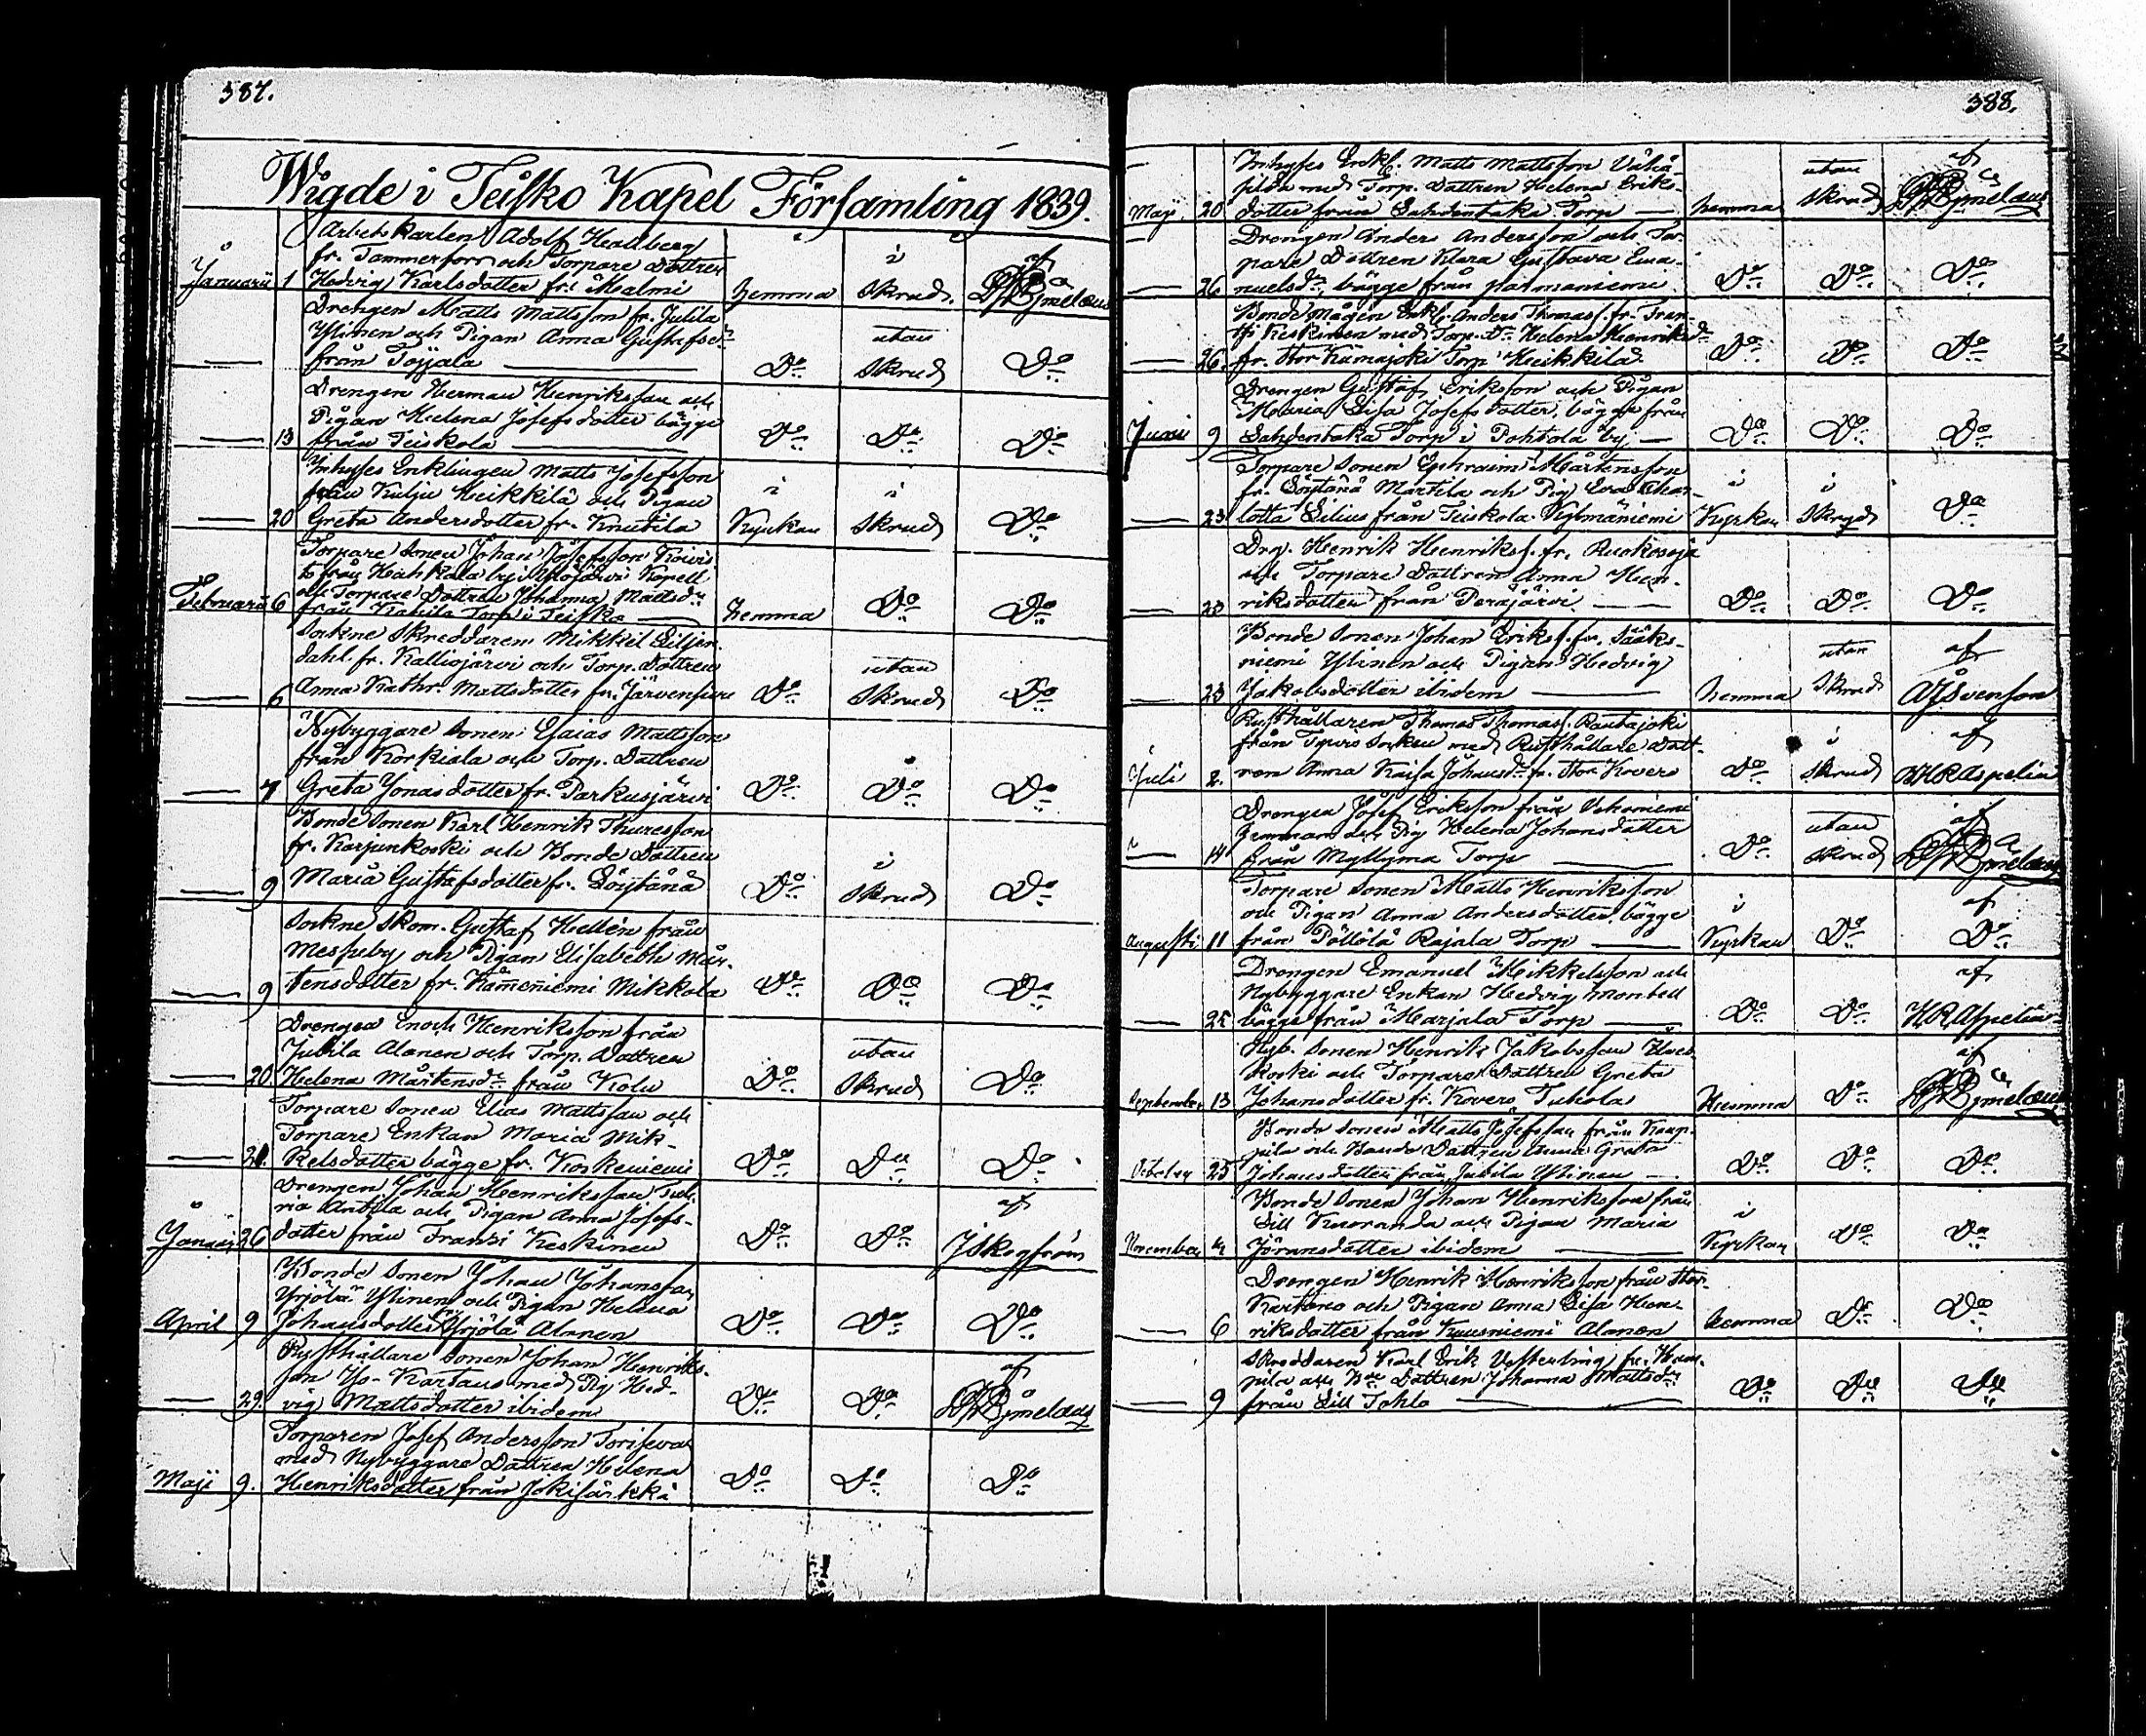 387.
Wigde i Teisko Kapel Församling 1839.
Arbets Karlen Adolf Hallberg
fr. Tammerfors och Torpare Dottren
Januarii 1 Hedvig Karlsdotter fr. Malmi hemma i Skrud. af
Drengen Matts Mattsson fr. Jutila
Ylinen och Pigan Anna Gustafsdr utan
— från Toijala — Do Skrud Do
Drengen Herman Henriksson och
Pigan Helena Josefsdotter bägge
— 13 från Teiskola — Do Do Do
Inhyses Enklingen Matts Josefsson
från Kulju Heikkilä och Pigan i i
— 20 Greta Andersdotter fr. Knutila Kyrkan Skrud Do
Torpare Sonen Johan Josefsson Koivis
to från by i Kapell
och Torpare Dottren Johanna Mattsdr
Februarii 6 från Torp i Teisko — hemma Do Do
Sockne Skreddaren Mikkel Liljen-
dahl. fr. Kalliojärvi och Torp. Dottren utan
— 6 Anna Kathr. Mattsdotter fr. Järvenpää Do Skrud Do
Nybyggare Sonen Esaias Mattsson
från Korkiala och Torp. Dottren
— 7 Greta Jonasdotter fr. Parkusjärvi Do Do Do
Bonde Sonen Karl Henrik Thuresson
fr. Karjunkoski och Bonde Dottren i
— 9 Maria Gustafsdotter fr. Löytänä Do Skrud Do
Sockne Skom. Gustaf Hellén från
Messuby och Pigan Elisabeth Mår-
— 9 tensdotter fr. Kämmeniemi Mikkola Do Do Do
Drengen Enoch Henriksson från
Jutila Alanen och Torp. Dottren utan
— 20 Helena Mårtensdr från Kolu Do Skrud Do
Torpare Sonen Elias Mattsson och
Torpare Enkan Maria Mik-
— 21. kelsdotter bägge fr. Koskeniemi Do Do Do
Drengen Johan Henriksson
Anttila och Pigan Anna Josefs- af
26 dotter från Fransi Keskinen Do Do J Skogström
Bonde Sonen Johan Johansson
Yrjölä Ylinen och Pigan Helena
April 9 Johansdotter fr. Yrjölä Alanen Do Do Do
Rusthållare Sonen Johan Henriks-
son Yo-Kartano med Pig. Hed- af
— 29. vig Mattsdotter ibidem Do Do
Torparen Josef Andersson Toriseva
med Nybyggare Dottren Helena
Maji 9. Henriksdotter från Jokisärkkä Do Do Do
388.
Inhyses Enkl. Matts Mattsson Vähä- af
med Torp. Dottren Helena Eriks- utan
Maji 20 dotter från Lahdentaka Torp — hemma Skrud
Drengen Anders Andersson och Tor-
pare Dottren Klara Gustava Ema-
— 26 nuelsdr, bägge från Do Do Do
Bonde Mågen Enkl. Anders Thomass. fr. Fran-
si Keskinen med Torp. Dr. Helena Henriksdr
— 26. fr. Stor Torp Heikkilä Do Do Do
Drengen Gustaf Eriksson och Pigan
Maria Lisa Josefsdotter, bägge från
Junii 9 Lahdentaka Torp i Pohtola by — Do Do Do
Torpare Sonen Ephraim Mårtensson
fr. Löytänä Martila och Pig. Eva Char- i i
— 23 lotta Lilius från Teiskola Kylmäniemi Kyrkan Skrud Do
Drg. Henrik Henrikss. fr. Ruokosoja
och Torpare Dottren Anna Hen-
— 23 riksdotter från Peräjärvi — Do Do Do
Bonde Sonen Johan Erikss. fr. Sääks-
niemi Ylinen och Pigan Hedvig utan af
— 23 Jakobsdotter ibidem — hemma Skrud Svenson
Rusthållaren Thomas Thomass. Rautajoki
från Socken med Rusthållare Dott- i af
Juli 2. ren Anna Kaisa Johansdr fr. Stor Kovero Do Skrud HRAspelin
Drengen Josef Eriksson från
och Pig. Helena Johansdotter utan af
— 14 från Myllymaa Torp — Do Skrud
Torpare Sonen Matts Henriksson
och Pigan Anna Andersdotter bägge i af
Augusti 11 från Pöllölä Rajala Torp — Kyrkan Do Do
Drengen Emanuel Mikkelsson och
Nybyggare Enkan Hedvig Montell af
— 25 bägge från Marjala Torp — Do Do HRAspelin
Nyb. Sonen Henrik Jakobsson
koski och Torpare Dottren Greta af
September 13 Johansdotter fr. Kovero Tuhola Hemma Do
Bonde Sonen Matts Josefsson från
och Bonde Dottren Anna Greta
October 25 Johansdotter från Jutila Ylinen — Do Do Do
Bonde Sonen Johan Henriksson från
Lill Kuoranda och Pigan Maria i
November 4 Jöransdotter ibidem — Kyrkan Do Do
Drengen Henrik Henriksson från Stor
Kartano och Pigan Anna Lisa Hen-
— 6 riksdotter från Kuusniemi Alanen hemma Do Do
Skreddaren Karl Erik Vesterling fr.
och Bde Dottren Johanna Mattsdr
— 9 från Lill Tohlo — Do Do Do